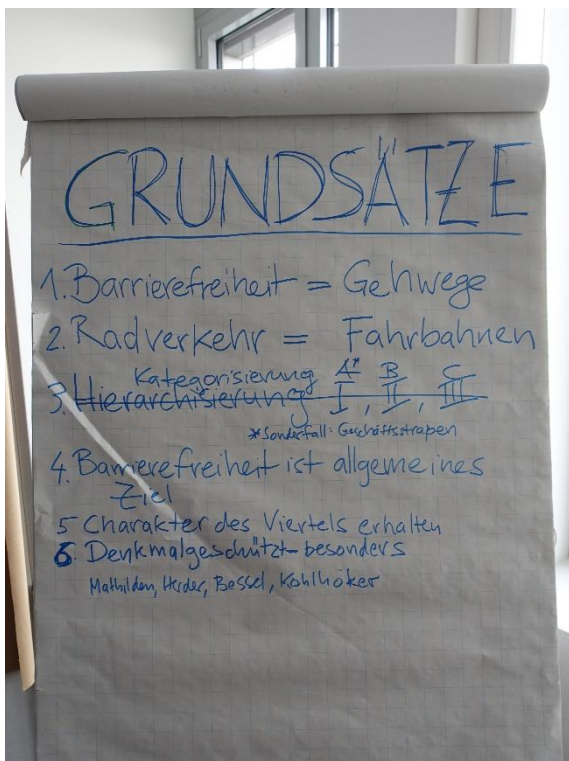 GRUNDSÄTZE
1. Barrierefreiheit = Gehwege
2. Radverkehr = Fahrbahnen
Kategorisierung A* B C
3. Hierarchisierung I, II, III
*Sonderfall: Geschäftsstraßen
4. Barrierefreiheit ist allgemeines
Ziel
5 Charakter des Viertels erhalten
6. Denkmalgeschützt besonders
Mathilden, Herder, Bessel, Kohlhöker